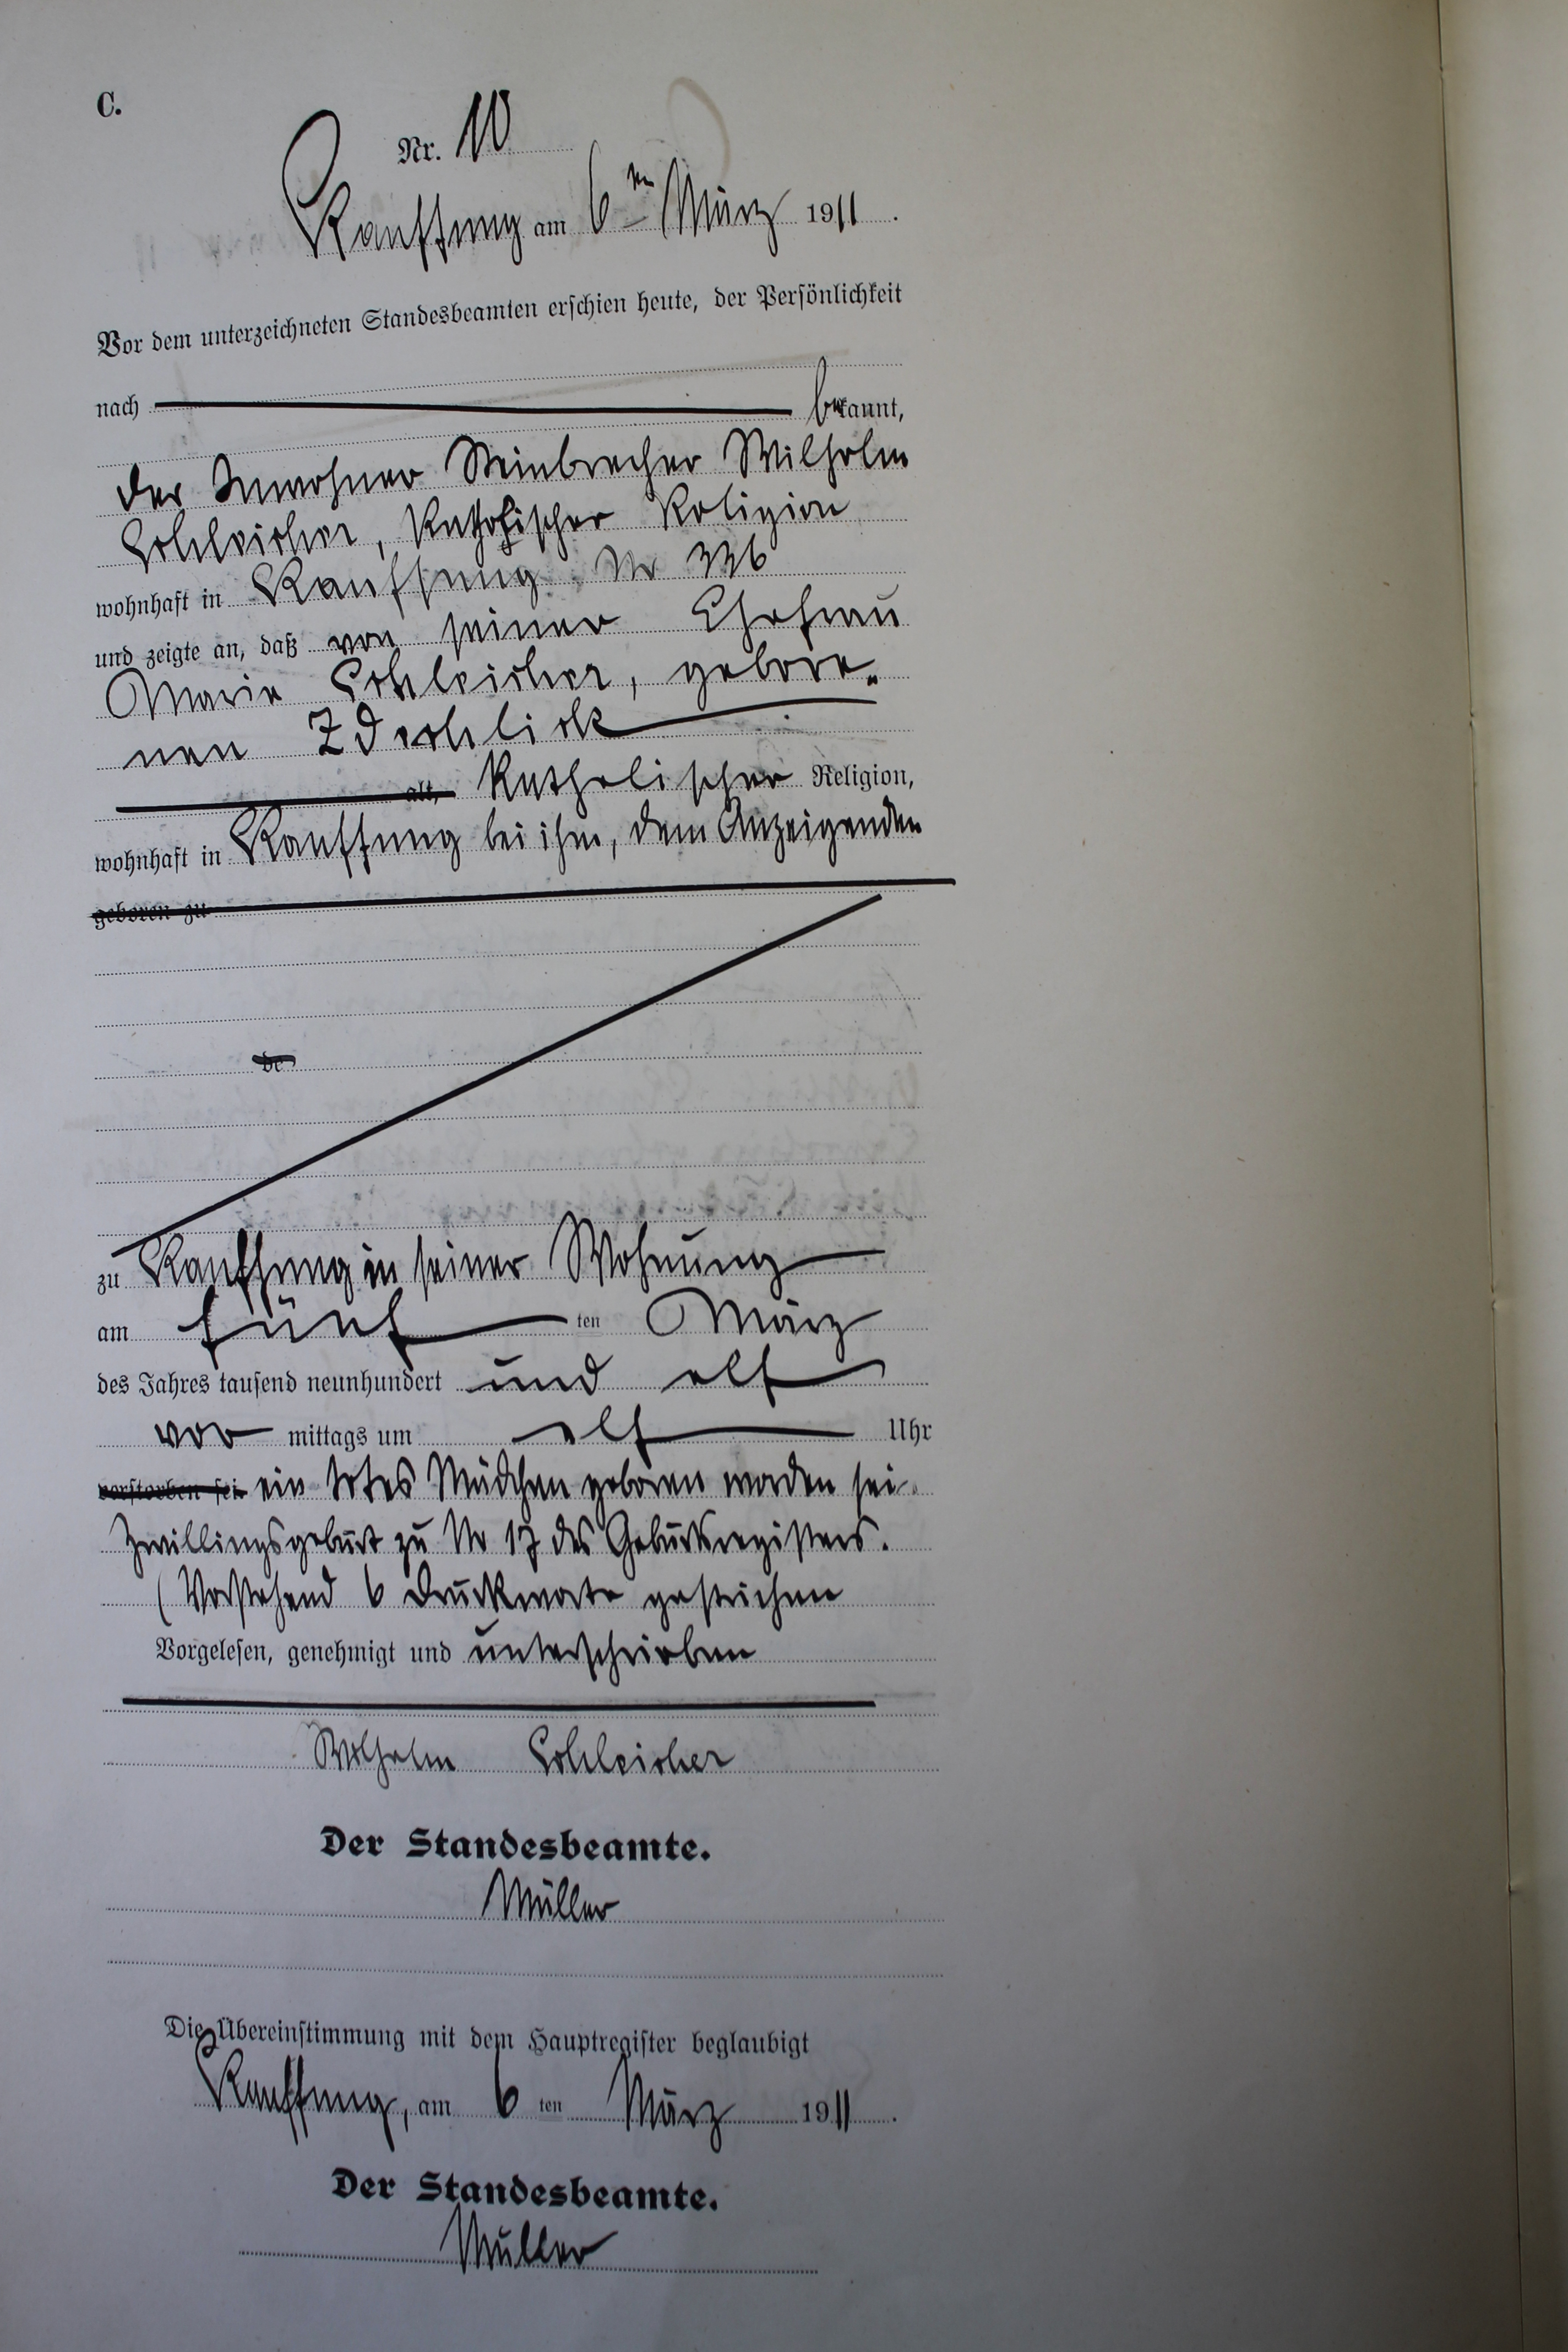 C.
Nr. 10
Kauffung am 6ten März 1911.
Vor dem unterzeichneten Standesbeamten erschien heute, der Persönlichkeit
nach bekannt,
der Inwohner Steinbrecher Wilhelm
Schleicher, katholischer Religion
wohnhaft in Kauffung Nr 336
und zeigte an, daß von seiner Ehefrau
Marie Schleicher, gebore-
nen Zdechlick
alt, katholischer Religion,
wohnhaft in Kauffung bei ihm, dem Anzeigenden
geboren zu
de
zu Kauffung in seiner Wohnung
am fünf ten März
des Jahres tausend neunhundert und elf
vor mittags um elf Uhr
verstorben sei ein totes Mädchen geboren worden sei.
Zwillingsgeburt zu Nr 17 des Geburtsregisters.
(Vorstehend 6 Druckworte gestrichen
Vorgelesen, genehmigt und unterschrieben
Wilhelm Schleicher
Der Standesbeamte.
Müller
Die Übereinstimmung mit dem Hauptregister beglaubigt
Kauffung, am 6 ten März 1911.
Der Standesbeamte.
Müller